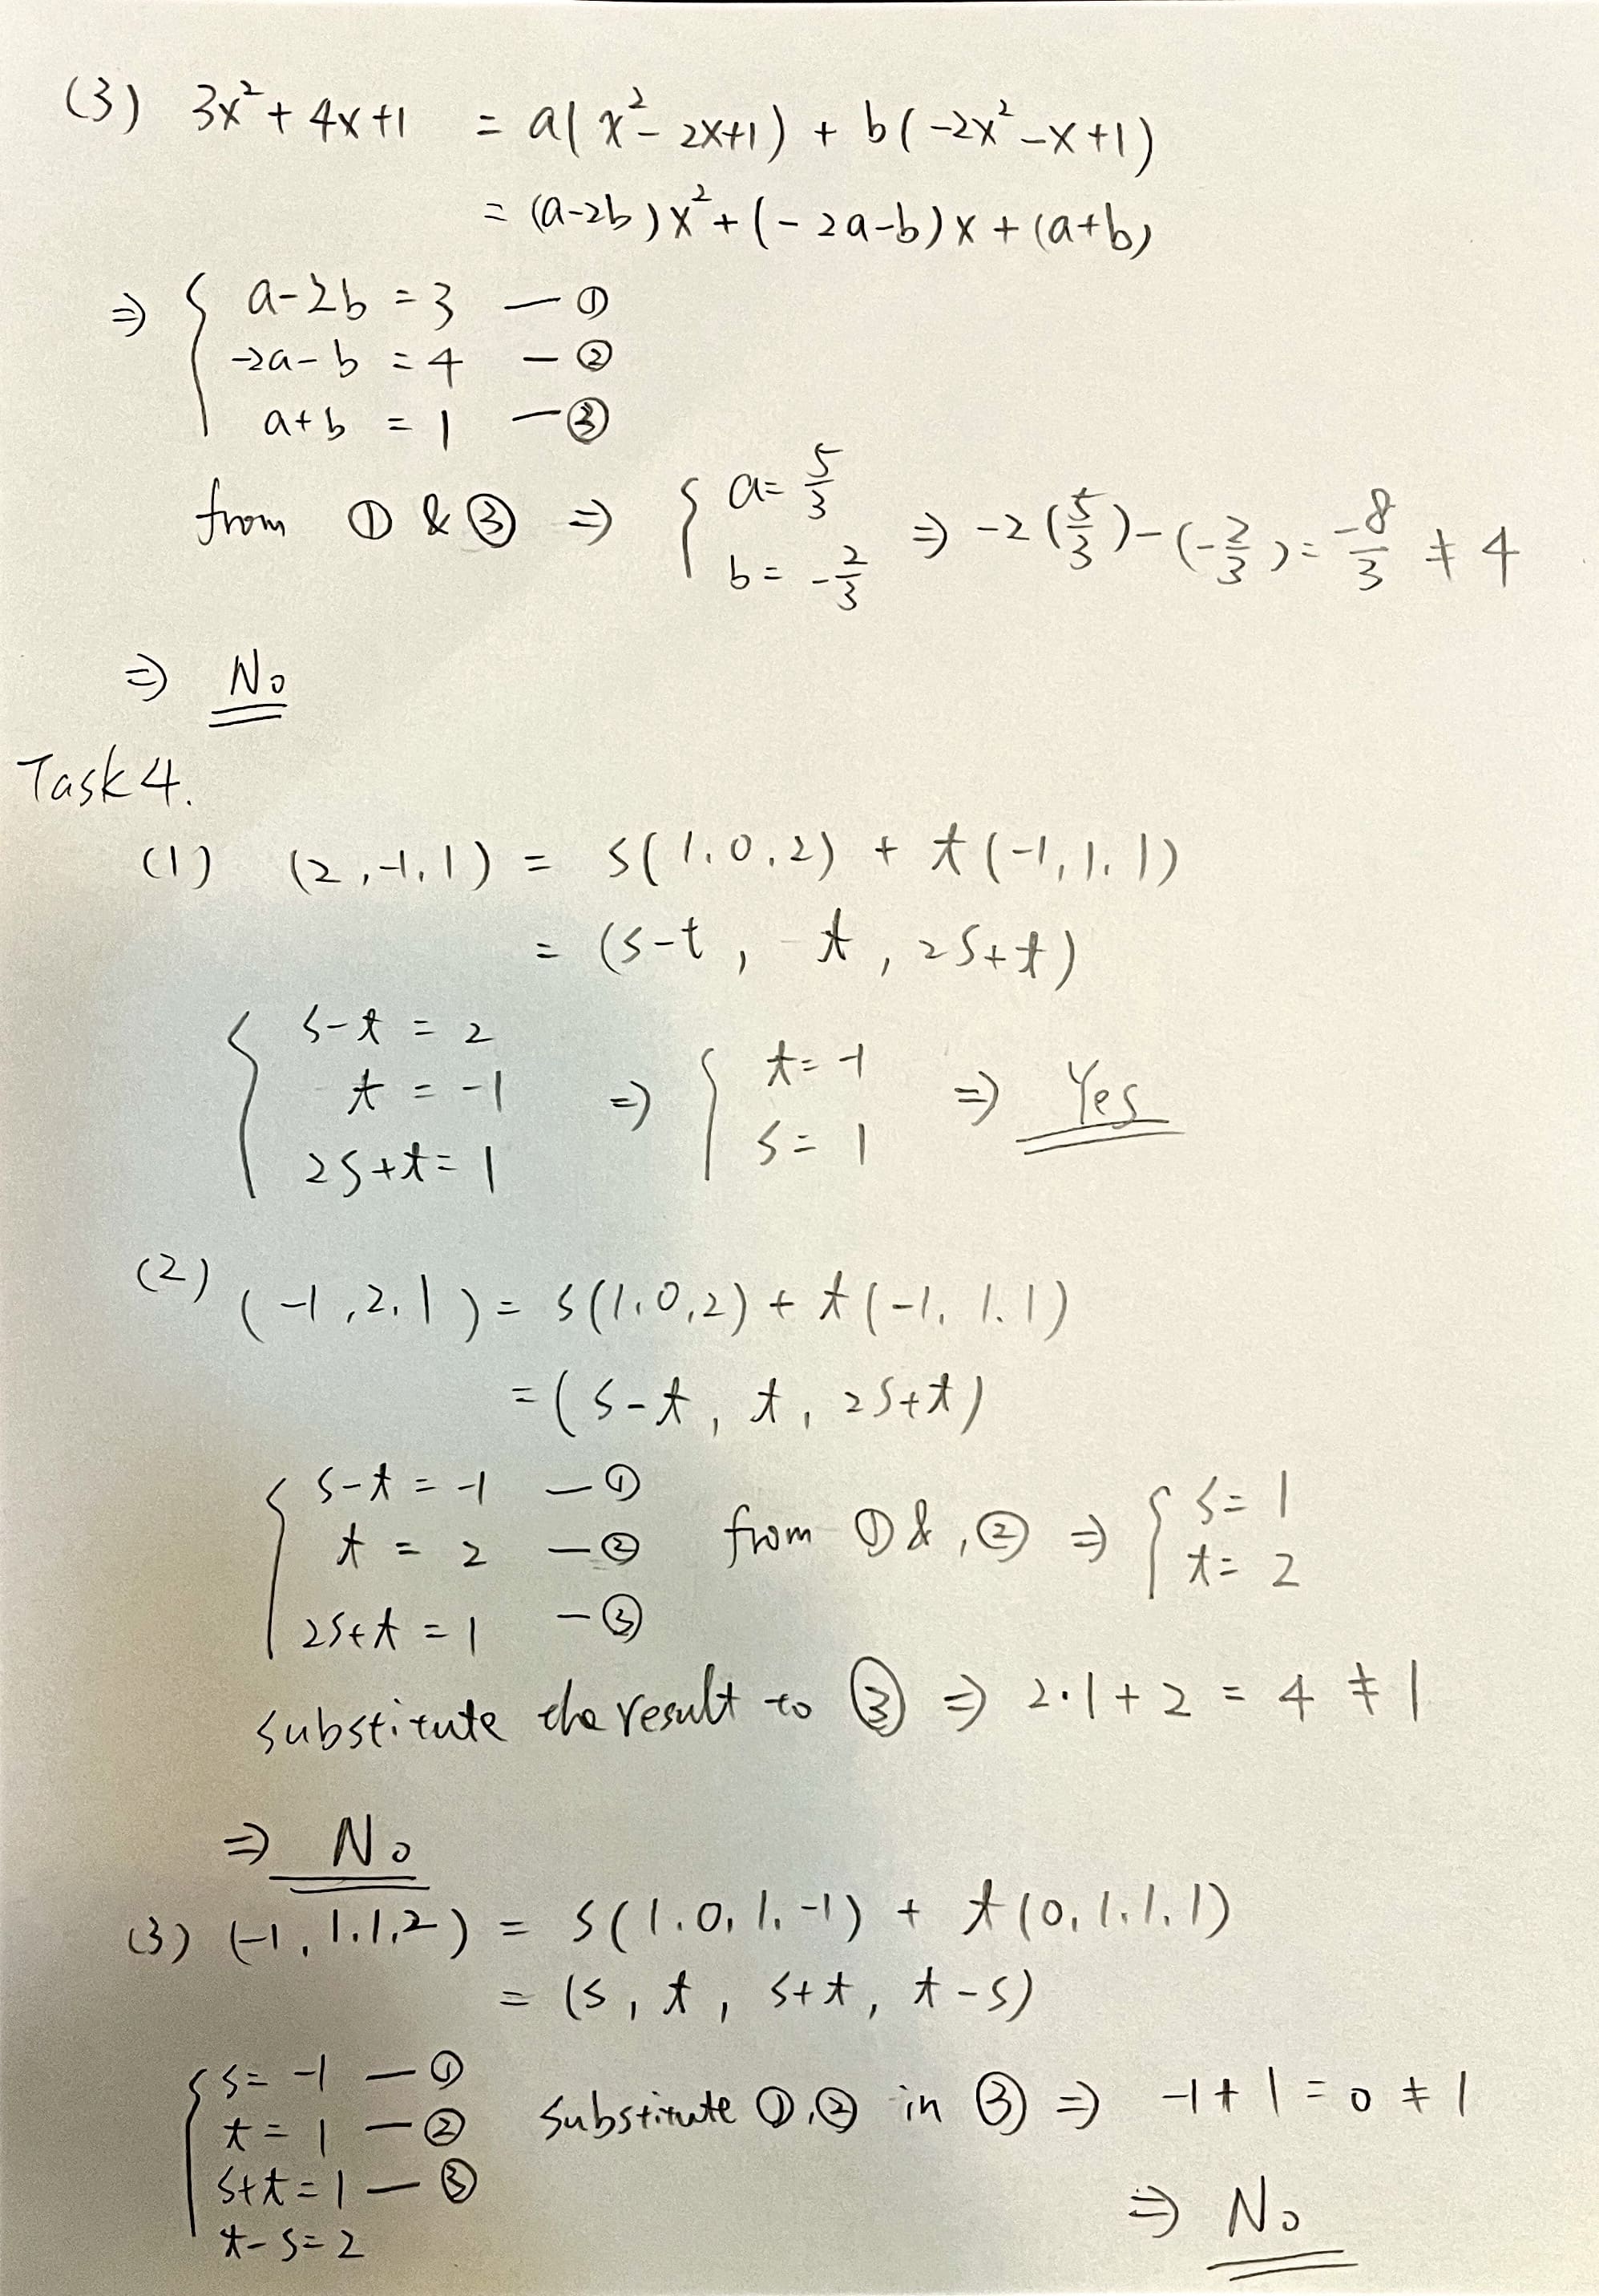 (3) 3x² + 4x+1 = a(x² - 2x+1) + b(-2x² - x+1)
= (a-2b)x² + (-2a-b)x + (a+b)
⇒ { a-2b = 3 — ①
-2a-b = 4 — ②
a+b = 1 — ③
from ① & ③ ⇒ { a= 5/3 b= -2/3 ⇒ -2(5/3)-(-2/3)= -8/3 ≠ 4
⇒ No
Task 4.
(1) (2,-1,1) = s(1,0,2) + t(-1,1,1)
= (s-t, t, 2s+t)
{ s-t = 2
t = -1
2s+t=1
⇒ { t=-1
s= 1
⇒ Yes
(2) (-1,2,1) = s(1,0,2) + t(-1,1,1)
= (s-t, t, 2s+t)
{ s-t = -1 — ①
t = 2 — ②
2s+t = 1 — ③
from ① &, ② ⇒ { s= 1
t= 2
substitute the result to ③ ⇒ 2·1+2 = 4 ≠ 1
⇒ No
(3) (-1,1,1,2) = s(1,0,1,-1) + t(0,1,1,1)
= (s, t, s+t, t-s)
{ s= -1 — ①
t= 1 — ②
s+t=1 — ③
t-s=2
substitute ①,② in ③ ⇒ -1+1=0≠1
⇒ No